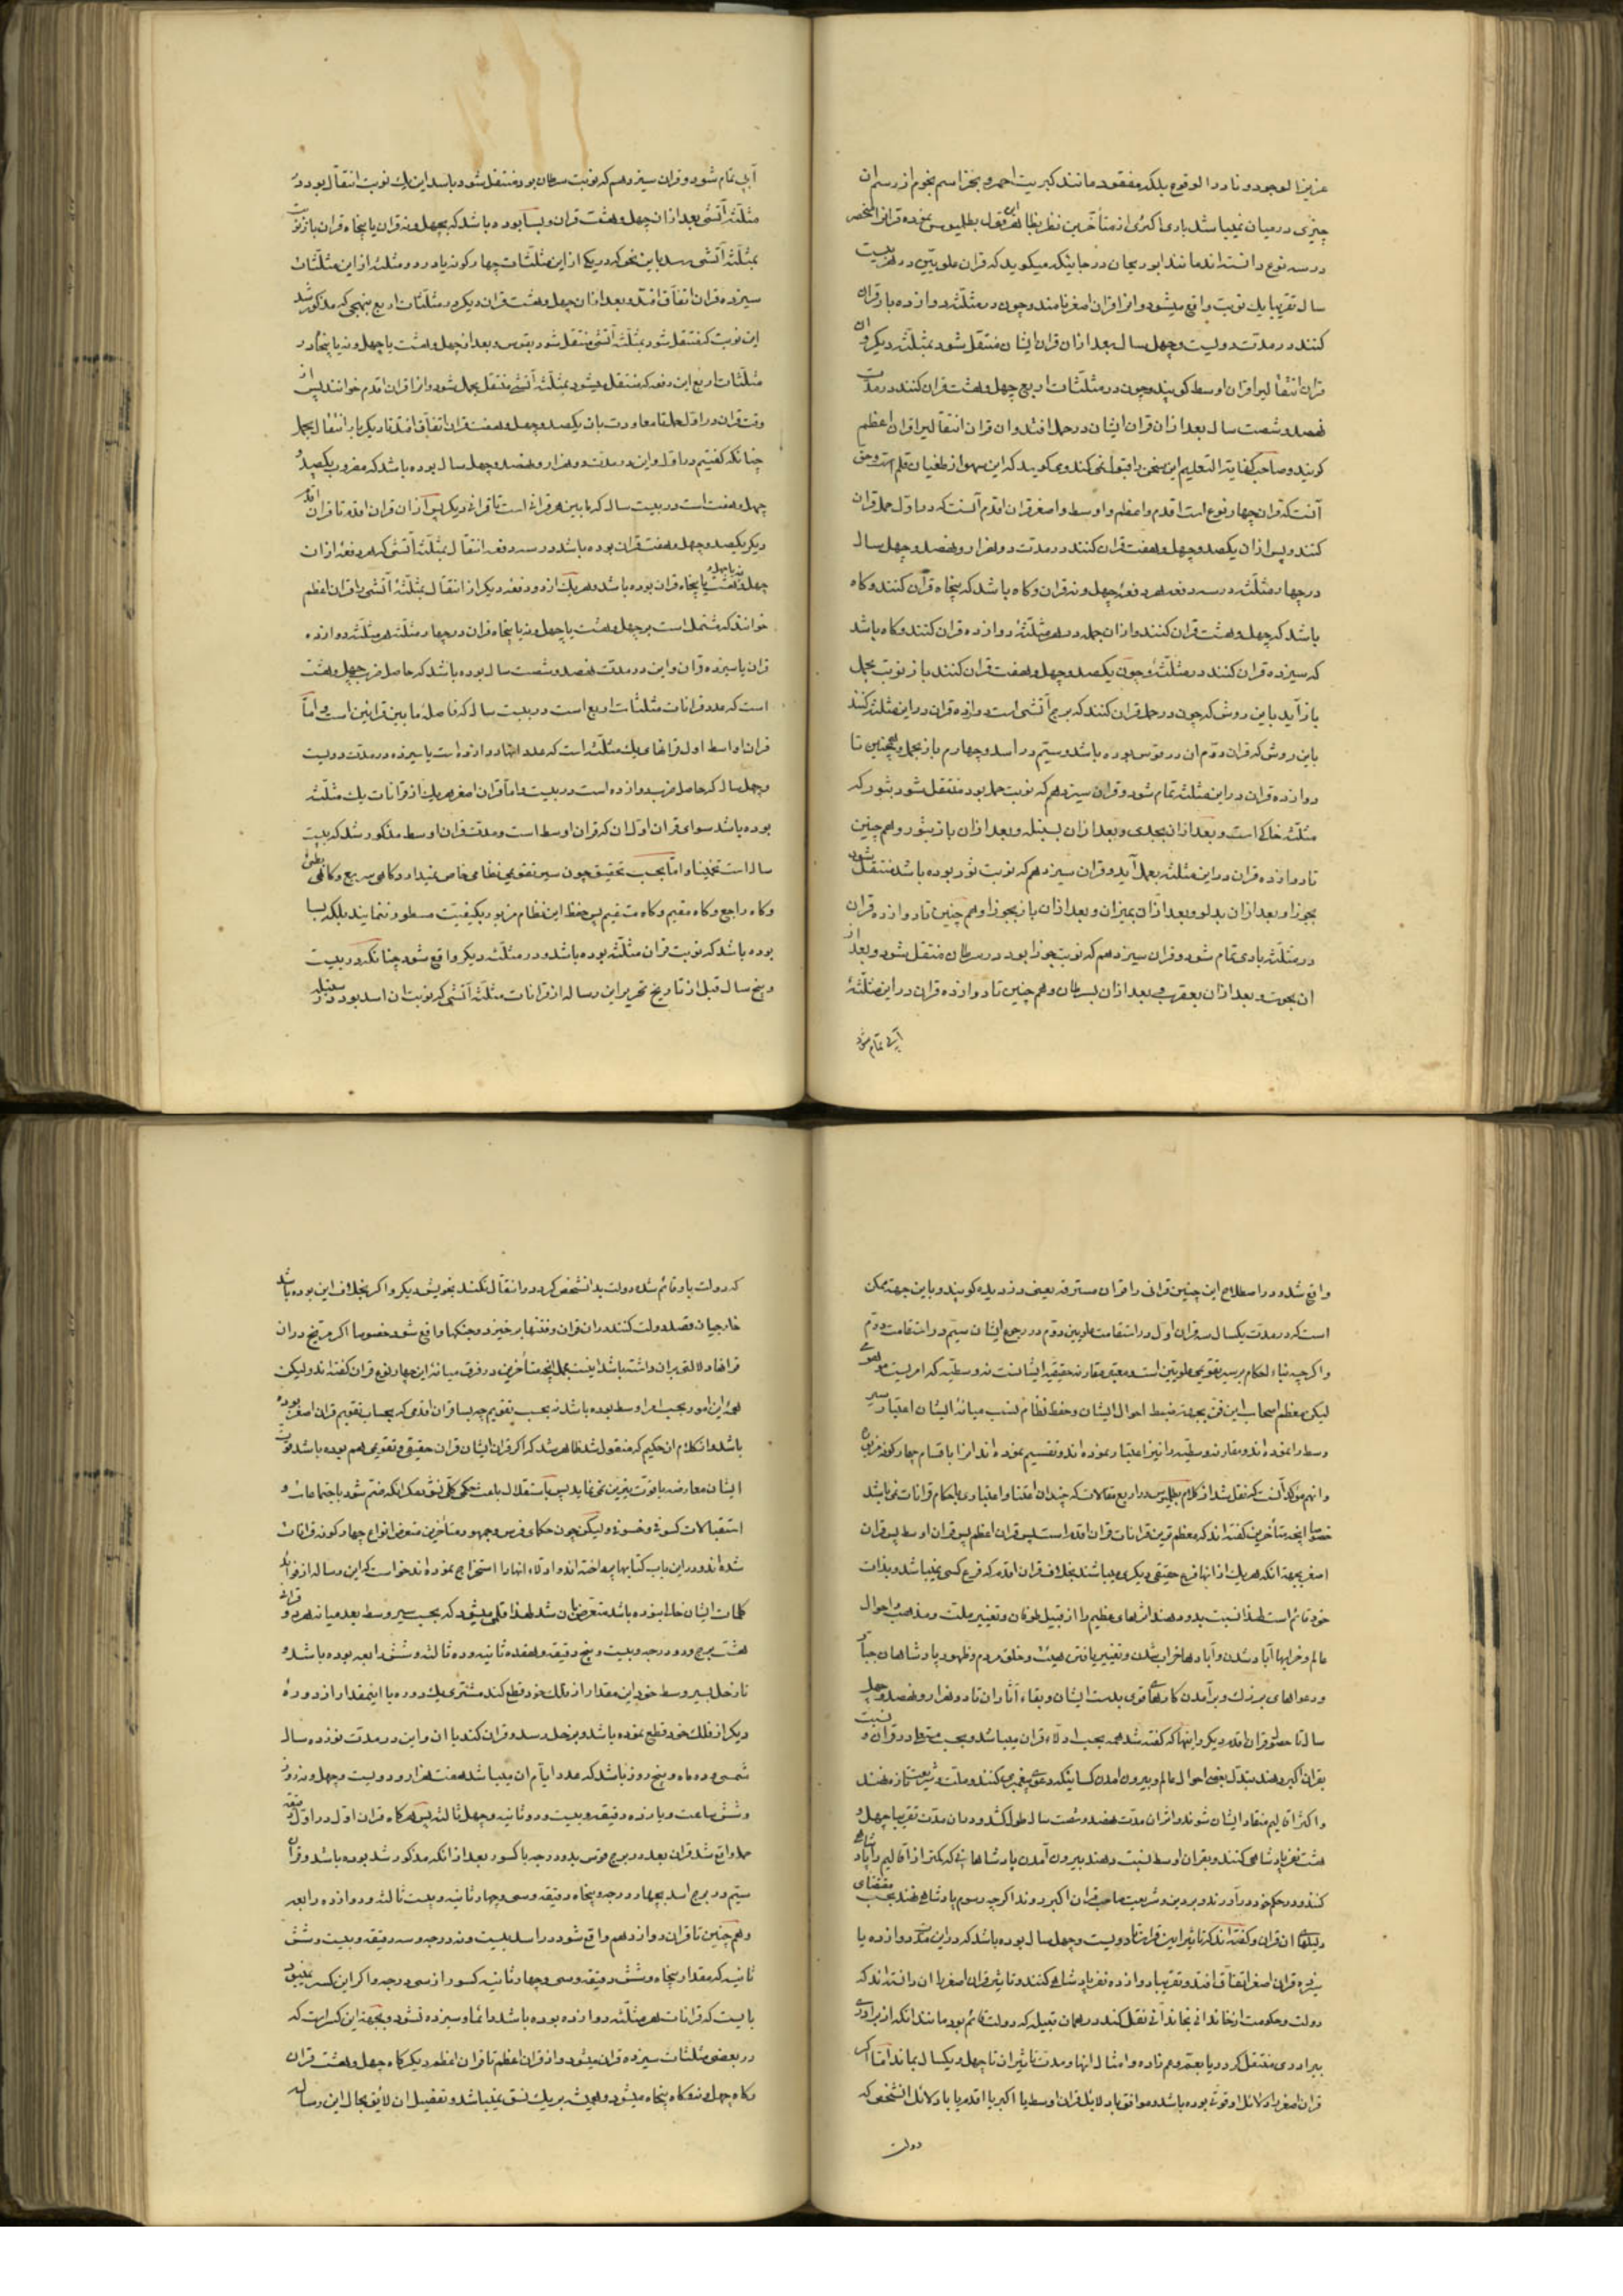 عزیز الوجود و نادر الوقوع بلکه مفقود مانند کبریت احمر و بجز اسم نجوم از رسم ان
چیزی در میان نمیباشد باری اکثری از متأخرین نظر بظاهر این قول بطلمیوس نموده قرانرا منحصر
در سه نوع دانسته اند مانند ابو ریحان در جائیکه میکوید که قران علویین در هر بیست
سال تقریبا یک نوبت واقع میشود و انرا قران اصغر نامند و چون در مثلثه دوازده بار قران
کنند در مدت دویست و چهل سال بعد از ان قران ایشان منتقل شود بمثلثه دیکر و ان
قران انتقالیرا قران اوسط کویند و چون در مثلثات اربع چهل و هشت قران کنند در مدت
نهصد و شصت سال بعد از ان قران ایشان در حمل افتد و ان قران انتقالیرا قران اعظم
کویند و صاحب کفایة التعلیم این سخن را قبول نمی کند و میکوید که این سهو از طغیان قلم است و حق
آنست که قران چهار نوع است اقدم و اعظم و اوسط و اصغر قران اقدم آنست که در اول حمل قران
کنند و پس از ان یکصد و چهل و هفت قران کنند در مدت دو هزار و نهصد و چهل سال
در چهار مثلثه در سه دفعه هر دفعۀ چهل و نه قران و کاه باشد که پنجاه قران کنند و کاه
باشد که چهل و هشت قران کنند و از ان جمله در هر مثلثۀ دوازده قران کنند و کاه باشد
که سیزده قران کنند در مثلثۀ و چون یکصد و چهل و هفت قران کنند باز نوبت بحمل
باز آید باین روش که چون در حمل قران کنند که برج آتشی است دوازده قران در این مثلثه کنند
باین روش که قران دوم ان در قوس بوده باشد و سیم در اسد و چهارم باز بحمل و همچنین تا
دوازده قران در این مثلثه تمام شود و قران سیزدهم که نوبت حمل بود منتقل شود بثور که
مثلثۀ خاکی است و بعد از ان بجدی و بعد از ان بسنبله و بعد از ان باز بثور و هم چنین
تا دوازده قران در این مثلثه بعمل آید و قران سیزدهم که نوبت ثور بوده باشد منتقل شود
بجوزا و بعد از ان بدلو و بعد از ان بمیزان و بعد از ان باز بجوزا و هم چنین تا دوازده قران
در مثلثه بادی تمام شود و قران سیزدهم که نوبت جوزا بود در سرطان منتقل شود و بعد از
ان بحوت و بعد از ان بعقرب و بعد از ان بسرطان و هم چنین تا دوازده قران در این مثلثۀ
آبی تمام شود
آبی تمام شود و قران سیزدهم که نوبت سرطان بود منتقل شود باسد این یک نوبت انتقال بود در
مثلثه آتشی بعد از ان چهل و هشت قران و بسا بوده باشد که بچهل و نه قران یا پنجاه قران باز نوبت
بمثلثه آتشی رسد باین نحو که در یکی از این مثلثات چهارکونه یا در دو مثلثه از این مثلثات
سیزده قران اتفاق افتد و بعد از ان چهل و هشت قران دیکر در مثلثات اربع بنهجی که مذکور شد
این نوبت که منتقل شود بمثلثه آتشی منتقل شود بقوس و بعد از چهل و هشت یا چهل و نه یا پنجاه در
مثلثات اربع این دفعه که منتقل میشود بمثلثه آتشی منتقل بحمل شود و انرا قران اقدم خوانند پس از
وقت قران در اول حمل تا معاودت بان یکصد و چهل و هفت قران اتفاق افتد تا دیکر بار انتقال بحمل
چنانکه کفتیم در اول و این در مدت دو هزار و نهصد و چهل سال بوده باشد که مضروب یکصد و
چهل و هفت است در بیست سال که مابین هر قرانی است تا قرانی دیکر پس از ان قران اقدم تا قران اقدم
دیکر یکصد و چهل و هفت قران بوده باشد در سه دفعه انتقال بمثلثۀ آتشی که هر دفعۀ از ان
چهل و هشت یا چهل و نه یا پنجاه قران بوده باشد و هر یک از دو دفعه دیکر از انتقال بمثلثۀ آتشی را قران اعظم
خوانند که مشتمل است بر چهل و هشت یا چهل و نه یا پنجاه قران در چهار مثلثه هر مثلثه دوازده
قران یا سیزده قران و این در مدت نهصد و شصت سال بوده باشد که حاصل ضرب چهل و هشت
است که عدد قرانات مثلثات اربع است در بیست سال که فاصلۀ مابین قرانین است و اما
قران اوسط اول قرانهای یک مثلثه است که عدد انها دوازده است یا سیزده در مدت دویست
و چهل سال که حاصل ضرب دوازده است در بیست و اما قران اصغر هر یک از قرانات یک مثلثه
بوده باشد سوای قران اول ان که قران اوسط است و مدت قران اوسط مذکور شد که بیست
سال است تخمینا و اما بحسب تحقیق چون سیر تقویمی نظامی خاص نمیدارد و کاهی سریع و کاهی بطی
و کاه راجع و کاه مقیم و کاه مستقیم پس حفظ این نظام مزبور بکیفیت مسطور ننمایند بلکه بسا
بوده باشد که نوبت قران مثلثه بوده باشد و در مثلثه دیکر واقع شود چنانکه در بیست
و پنج سال قبل از تاریخ تحریر این رساله از قرانات مثلثه آتشی که نوبت ان اسد بود در سنبله
واقع شد و در اصطلاح این چنین قرانی را قران مسترقه یعنی دزدیده کویند و باین جهت ممکن
است که در مدت یکسال سه قران اول در استقامت علویین دوم در رجوع ایشان سیم در استقامت دوم
و اکر چه بناء احکام بر سیر تقویمی علویین است و معتبر مقارنه حقیقیه ایشانست نه وسطیه که امریست موهومی
لیکن معظم اصحاب این فن بجهت ضبط احوال ایشان و حفظ نظام نسب میانۀ ایشان اعتبار سیر
وسط را نموده اند و مقارنه وسطیه را نیز اعتبار نموده اند و تقسیم نموده اند انرا باقسام چهارکونه مزبوره
و انهم مؤکد آنست که نقل شد از کلام بطلمیوس در اربع مقالات که چندان اعتنا و اعتباری باحکام قرانات نمی باشد
خصوصا انچه متأخرین کفته اند که معظم ترین قرانات قران اقدم است پس قران اعظم پس قران اوسط پس قران
اصغر بجهة انکه هر یک از انها فرع حقیقی دیکری میباشند بخلاف قران اقدم که فرع کسی نمیباشد و بذات
خود قائم است لهذا نسبت بدو دهند اثرهای عظیم را از قبیل طوفان و تغییر ملت و مذهب و احوال
عالم و خرابیها آباد شدن و آبادیها خراب شدن و تغییر یافتن هیئت و خلق مردم و ظهور پادشاهان جبار
و دعواهای بزرک و بر آمدن کارهای قوی بدست ایشان و بقاء آثار ان تا دو هزار و نهصد و چهل
سال تا حصول قران اقدم دیکر و اینها که کفته شد همه بحسب ادلاء قران میباشد و بحسب در قران و نسبت
بقران اکبر دهند تبدل بعضی احوال عالم و بیرون امدن کسانیکه دعوی پیغمبری کنند و ملت و شریعت تازه نهند
و اکثر اقالیم منقاد ایشان شوند و اثر ان مدت نهصد و شصت سال طول کشد و در ان مدت تقریبا چهل و
هشت نفر پادشاهی کنند و بقران اوسط نسبت دهند بیرون آمدن پادشاهانی که یکی از اقالیم را پادشاهی
کنند و در حکم خود در آورند و بر دین و شریعت صاحب قران اکبر روند اکر چه رسوم پادشاهی نهند بحسب مقتضای
دلیلهای ان قران و کفته اند که تأثیر این قران تا دویست و چهل سال بوده باشد که در این مدت دوازده یا
سیزده قران اصغر اتفاق افتد و تقریبا دوازده نفر پادشاهی کنند و تأثیر قران اصغر را ان دانسته اند که
دولت و حکومت از خاندانی بخاندانی نقل کند در همان قبیله که دولت قائم بود مانند انکه از برادری
ببرادری منتقل کردد یا بعم و عم زاده و امثال انها و مدت تأثیر ان تا چهل و یکسال بماند اما اکر
قران اصغر را دلائل قوت بوده باشد و موافق با دلایل قران اوسط یا اکبر یا اقدم یا با دلائل انشخص که
دولت
که دولت باو قائم شده دولت بدانشخص کردد و انتقال نکند بخویش دیکر و اکر بخلاف این بوده باشد
خارجیان قصد دولت کنند در ان قران و فتنها بر خیزد و جنکها واقع شود خصوصا اکر مریخ در ان
قرانها دلالتی بران داشته باشد اینست مجمل انچه متأخرین در فرق میانۀ این چهار نوع قران کفته اند و لیکن
همۀ این امور بحسب امر اوسط بوده باشد نه بحسب تقویم چه بسا قران اقدمی که بحساب تقویم قران اصغر بوده
باشد و از کلام ان حکیم که منقول شد ظاهر شد که اکر قران ایشان قران حقیقی و تقویمی هم بوده باشد قوت
ایشان معارضه با قوت نیرین نمی نماید پس باستقلال باعث حکمی کلی نتواند شد مکر انکه منضم شود باجتماعات و
استقبالات کسوفی و خسوفی و لیکن چون حکمای فرس و جمهور متأخرین متعرض انواع چهارکونه قرانات
شده اند و در این باب کتابها پرداخته اند و ادلاء انها را استخراج نموده اند نخواست که این رساله از فوائد
کلمات ایشان خالی بوده باشد متعرض ان شد لهذا قلمی میشود که بحسب سیر وسط بعد میانه هر دو قرانی
هشت برج و دو درجه و بیست و پنج دقیقه و هفده ثانیه و ده ثالثه و شش رابعه بوده باشد و
تا زحل بسیر وسط خود این مقدار از فلک خود قطع کند مشتری یک دوره با اینمقدار از دورۀ
دیکر از فلک خود قطع نموده باشد و بزحل رسد و قران کند با ان و این در مدت نوزده سال
شمسی و ده ماه و پنج روز باشد که عدد ایام ان میباشد هفت هزار و دویست و چهل و نه روز
و شش ساعت و یازده دقیقه و بیست و دو ثانیه و چهل ثالثه پس هر کاه قران اول در اول دقیقه
حمل واقع شد قران بعد در برج قوس بدو درجه با کسور بعد از انکه مذکور شد بوده باشد و قران
سیم در برج اسد بچهار درجه و پنجاه دقیقه و سی و چهار ثانیه و بیست ثالثه و دوازده رابعه
و هم چنین تا قران دوازدهم واقع شود در اسد بیست و نه درجه و سه دقیقه و بیست و شش
ثانیه که مقدار پنجاه و شش دقیقه و سی و چهار ثانیه کسور از سی درجه و اکر این کسر نمیبود
بایست که قرانات هر مثلثه دوازده بوده باشد دائما و سیزده نشود و بجهة این کسر است که
در بعضی مثلثات سیزده قران میشود و از قران اعظم تا قران اعظم دیکر کاه چهل و هشت قران
و کاه چهل و نه و کاه پنجاه میشود و همیشه بر یک نسق نمیباشد و تفصیل ان لائق بحال این رساله